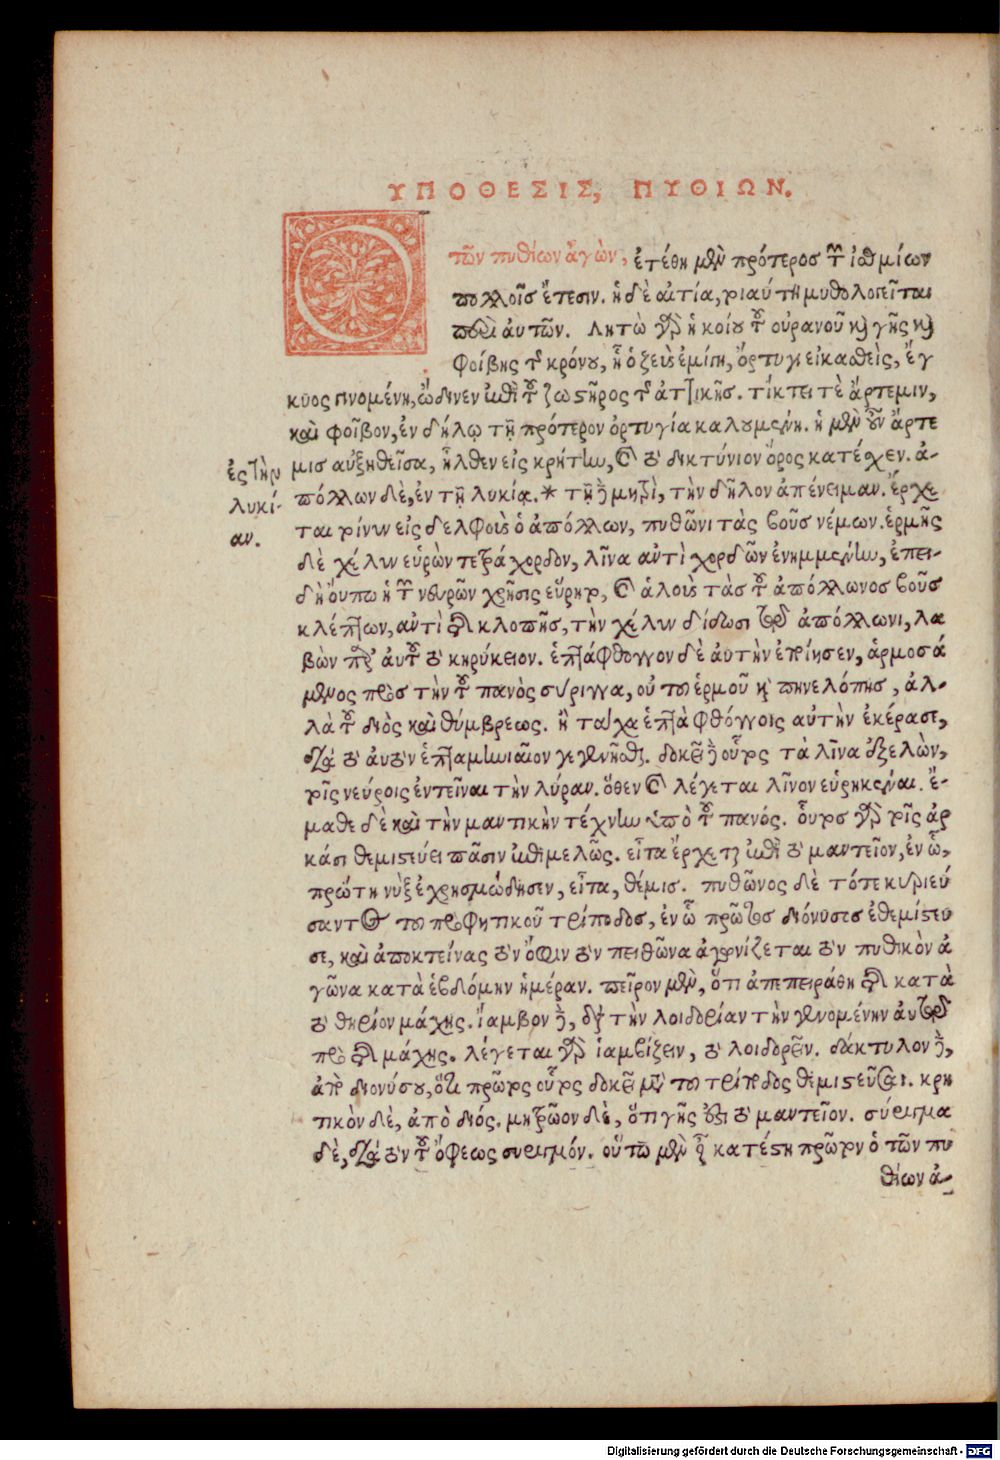 ΥΠΟΘΕΣΙΣ, ΠΥΘΙΩΝ.
Ο τῶν πυθίων ἀγὼν, ἐτέθη μὲν πρότερος τῶν ἰσθμίων
πολλοῖς ἔτεσιν. ἡ δὲ αἰτία, τοιαύτη μυθολογεῖται
περὶ αὐτῶν. Λητὼ γὰρ ἡ κοίου τοῦ οὐρανοῦ καὶ γῆς καὶ
φοίβης τῆς κρόνου, ᾗ ὁ ζεὺς ἐμίγη, ὄρτυγι εἰκασθεὶς, ἔγ
κυος γινομένη, ὤδινεν ἐπὶ τοῦ ζωστῆρος τῆς ἀττικῆς. τίκτει τὲ ἄρτεμιν,
καὶ φοῖβον, ἐν δήλῳ τῇ πρότερον ὀρτυγία καλουμένη. ἡ μὲν οὖν ἄρτε
μις αὐξηθεῖσα, ἦλθεν εἰς κρήτην, καὶ τὸ δικτύνιον ὄρος κατέσχεν. ἀ-
πόλλων δὲ, ἐν τῇ λυκίᾳ. * τῇ δὲ μητρὶ, τὴν δῆλον ἀπένειμαν. ἔρχε
ται τοίνυν εἰς δελφοὺς ὁ ἀπόλλων, πυθῶνι τὰς βοῦς νέμων. ἑρμῆς
δὲ χέλυν εὑρὼν τετράχορδον, λῖνα αὐτὶ χορδῶν ἐνημμένην, ἐπει-
δὴ οὔπω ἡ τῶν νευρῶν χρῆσις εὕρητο, καὶ ἁλοὺς τὰς τοῦ ἀπόλλωνος βοῦς
κλέπτων, αὐτὶ τῆς κλοπῆς, τὴν χέλυν δίδωσι τῷ ἀπόλλωνι, λα
βὼν παρ' αὐτοῦ τὸ κηρύκειον. ἑπτάφθογγον δὲ αὐτὴν ἐποίησεν, ἁρμοσά
μενος πρὸς τὴν τοῦ πανὸς σύριγγα, οὐ τοῦ ἑρμοῦ καὶ πηνελόπης, ἀλ-
λὰ τοῦ διὸς καὶ θύμβρεως. ἢ τάχα ἑπτὰ φθόγγοις αὐτὴν ἐκέρασε,
διὰ τὸ αὐτὸν ἑπταμηνιαῖον γεγενῆσθαι. δοκεῖ δὲ οὗτος τὰ λῖνα ἐξελὼν,
τοῖς νεύροις ἐντεῖναι τὴν λύραν. ὅθεν καὶ λέγεται λῖνον εὑρηκέναι. ἔ-
μαθε δὲ καὶ τὴν μαντικὴν τέχνην ὑπὸ τοῦ πανός. οὗτος γὰρ τοῖς ἀρ
κάσι θεμιστεύει πᾶσιν ἐπιμελῶς. εἶτα ἔρχεται ἐπὶ τὸ μαντεῖον, ἐν ᾧ,
πρώτη νὺξ ἐχρησμώδησεν, εἶτα, θέμις. πυθῶνος δὲ τότε κυριεύ
σαντος τοῦ προφητικοῦ τρίποδος, ἐν ᾧ πρῶτος διόνυσος ἐθεμίστευ
σε, καὶ ἀποκτείνας τὸν ὄφιν τὸν πειθῶνα ἀγωνίζεται τὸν πυθικὸν ἀ
γῶνα κατὰ ἑβδόμην ἡμέραν. πεῖρον μὲν, ὅτι ἀπεπειράθη τῆς κατὰ
τὸ θηρίον μάχης. ἴαμβον δὲ, διὰ τὴν λοιδορίαν τὴν γενομένην αὐτῷ
πρὸ τῆς μάχης. λέγεται γὰρ ἰαμβίζειν, τὸ λοιδορεῖν. δάκτυλον δὲ,
ἀπὸ διονύσου, ὅτι πρῶτος οὗτος δοκεῖ ἀπὸ τοῦ τρίποδος θεμιστεῦσαι. κρη
τικὸν δὲ, ἀπὸ διός. μητρῶον δὲ, ὅτι γῆς ἐστι τὸ μαντεῖον. σύριγμα
δὲ, διὰ τὸν τοῦ ὄφεως συριγμόν. οὕτω μὲν οὖν κατέστη πρῶτον ὁ τῶν πυ
θίων ἀ-
ἐς τὴν
λυκί-
αν.
Digitalisierung gefördert durch die Deutsche Forschungsgemeinschaft - DFG